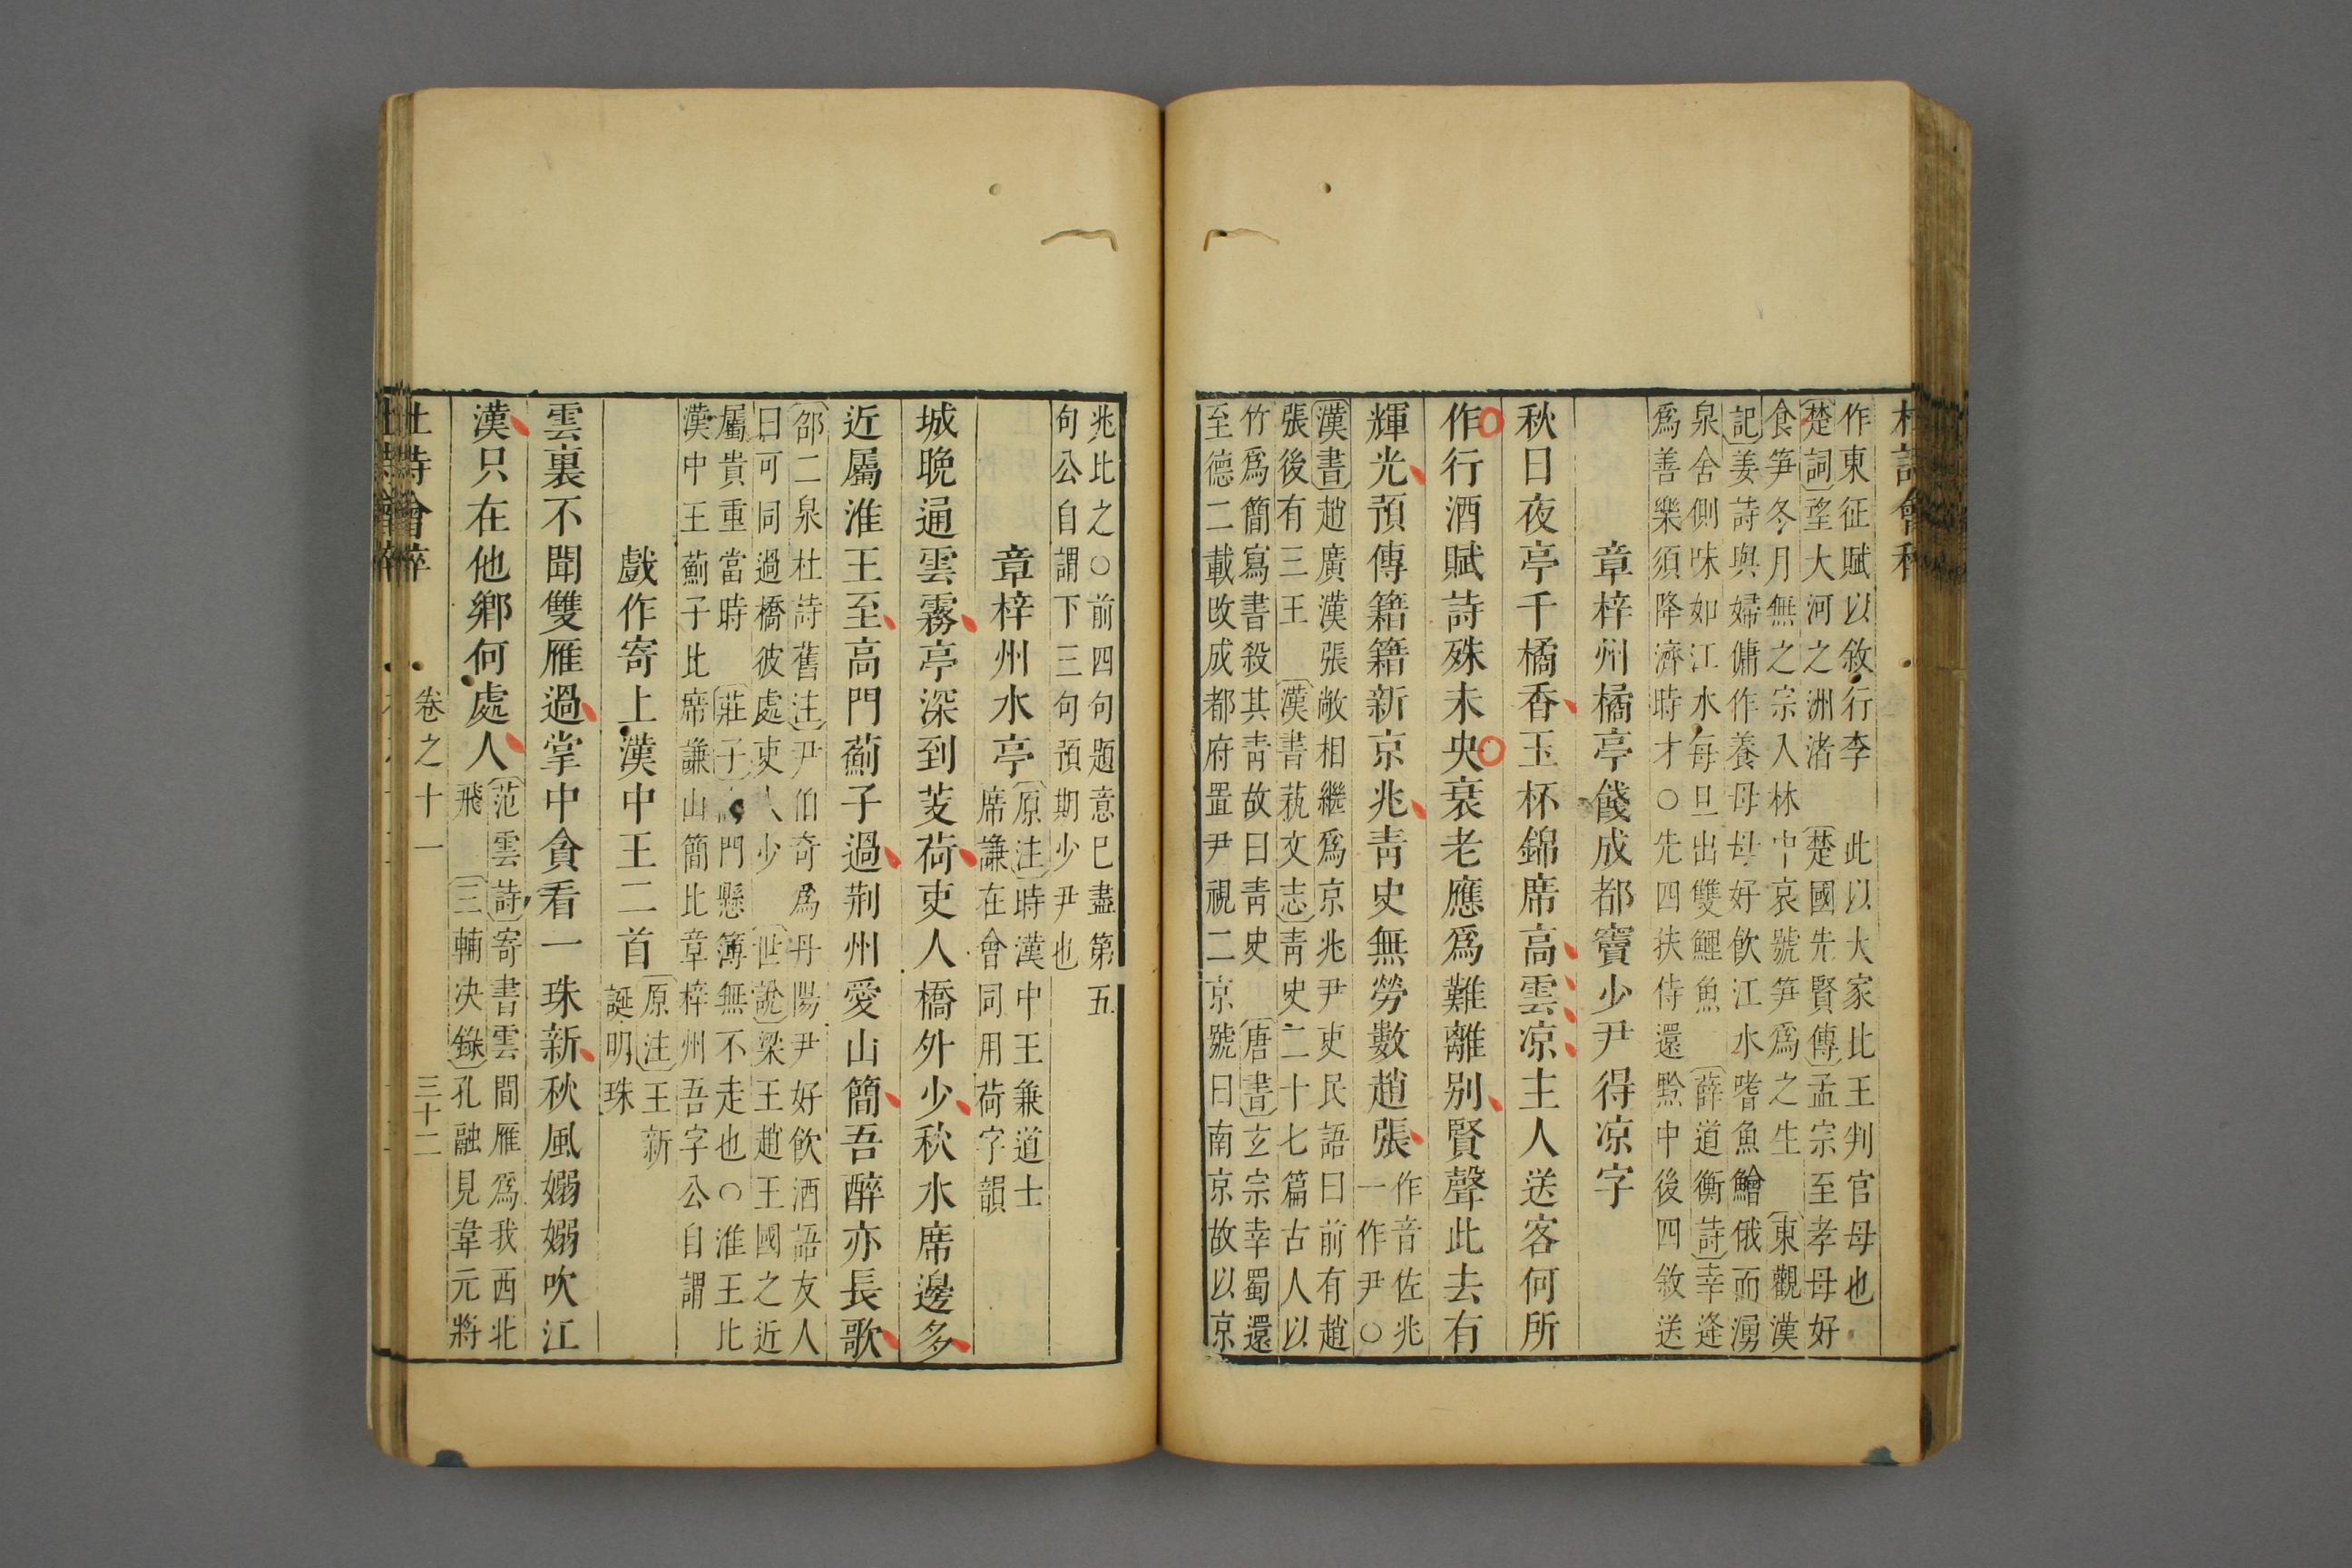 作東征賦以敘行李　此以大家比王判官母也
楚詞望大河之洲渚　楚國先賢傳孟宗至孝母好
食笋冬月無之宗入林中哀號笋為之生　東觀漢
記姜詩與婦傭作養母母好飲江水嗜魚鱠俄而湧
泉舍側味如江水每旦出雙鯉魚　薛道衡詩幸逢
爲善樂須降濟時才○先四扶侍還黔中後四敘送
章梓州橘亭餞成都竇少尹得凉字
秋日夜亭千橘香玉杯錦席高雲凉主人送客何所
作行酒賦詩殊未央衰老應爲難離別賢聲此去有
輝光預傳籍籍新京兆靑史無勞數趙張
作音佐兆
一作尹○
漢書趙廣漢張敞相繼爲京兆尹吏民語曰前有趙
張後有三王　漢書藝文志靑史二十七篇古人以
竹爲簡寫書殺其靑故曰靑史　唐書玄宗幸蜀還
至德二載改成都府置尹視二京號曰南京故以京
兆比之○前四句題意已盡第五
句公自謂下三句預期少尹也
章梓州水亭
原注時漢中王兼道士
席謙在會同用荷字韻
城晚通雲霧亭深到芰荷吏人橋外少秋水席邊多
近屬淮王至高門薊子過荆州愛山簡吾醉亦長歌
邵二泉杜詩舊注尹伯奇爲丹陽尹好飲酒語友人
曰可同過橋彼處吏人少　世說梁王趙王國之近
屬貴重當時　莊子門懸簿無不走也○淮王比
漢中王薊子比席謙山簡比章梓州吾字公自謂
戲作寄上漢中王二首
原注王新
誕明珠
雲裏不聞雙雁過掌中貪看一珠新秋風嫋嫋吹江
漢只在他鄉何處人
范雲詩寄書雲間雁爲我西北
飛　三輔決錄孔融見韋元將
卷之十一
三十二